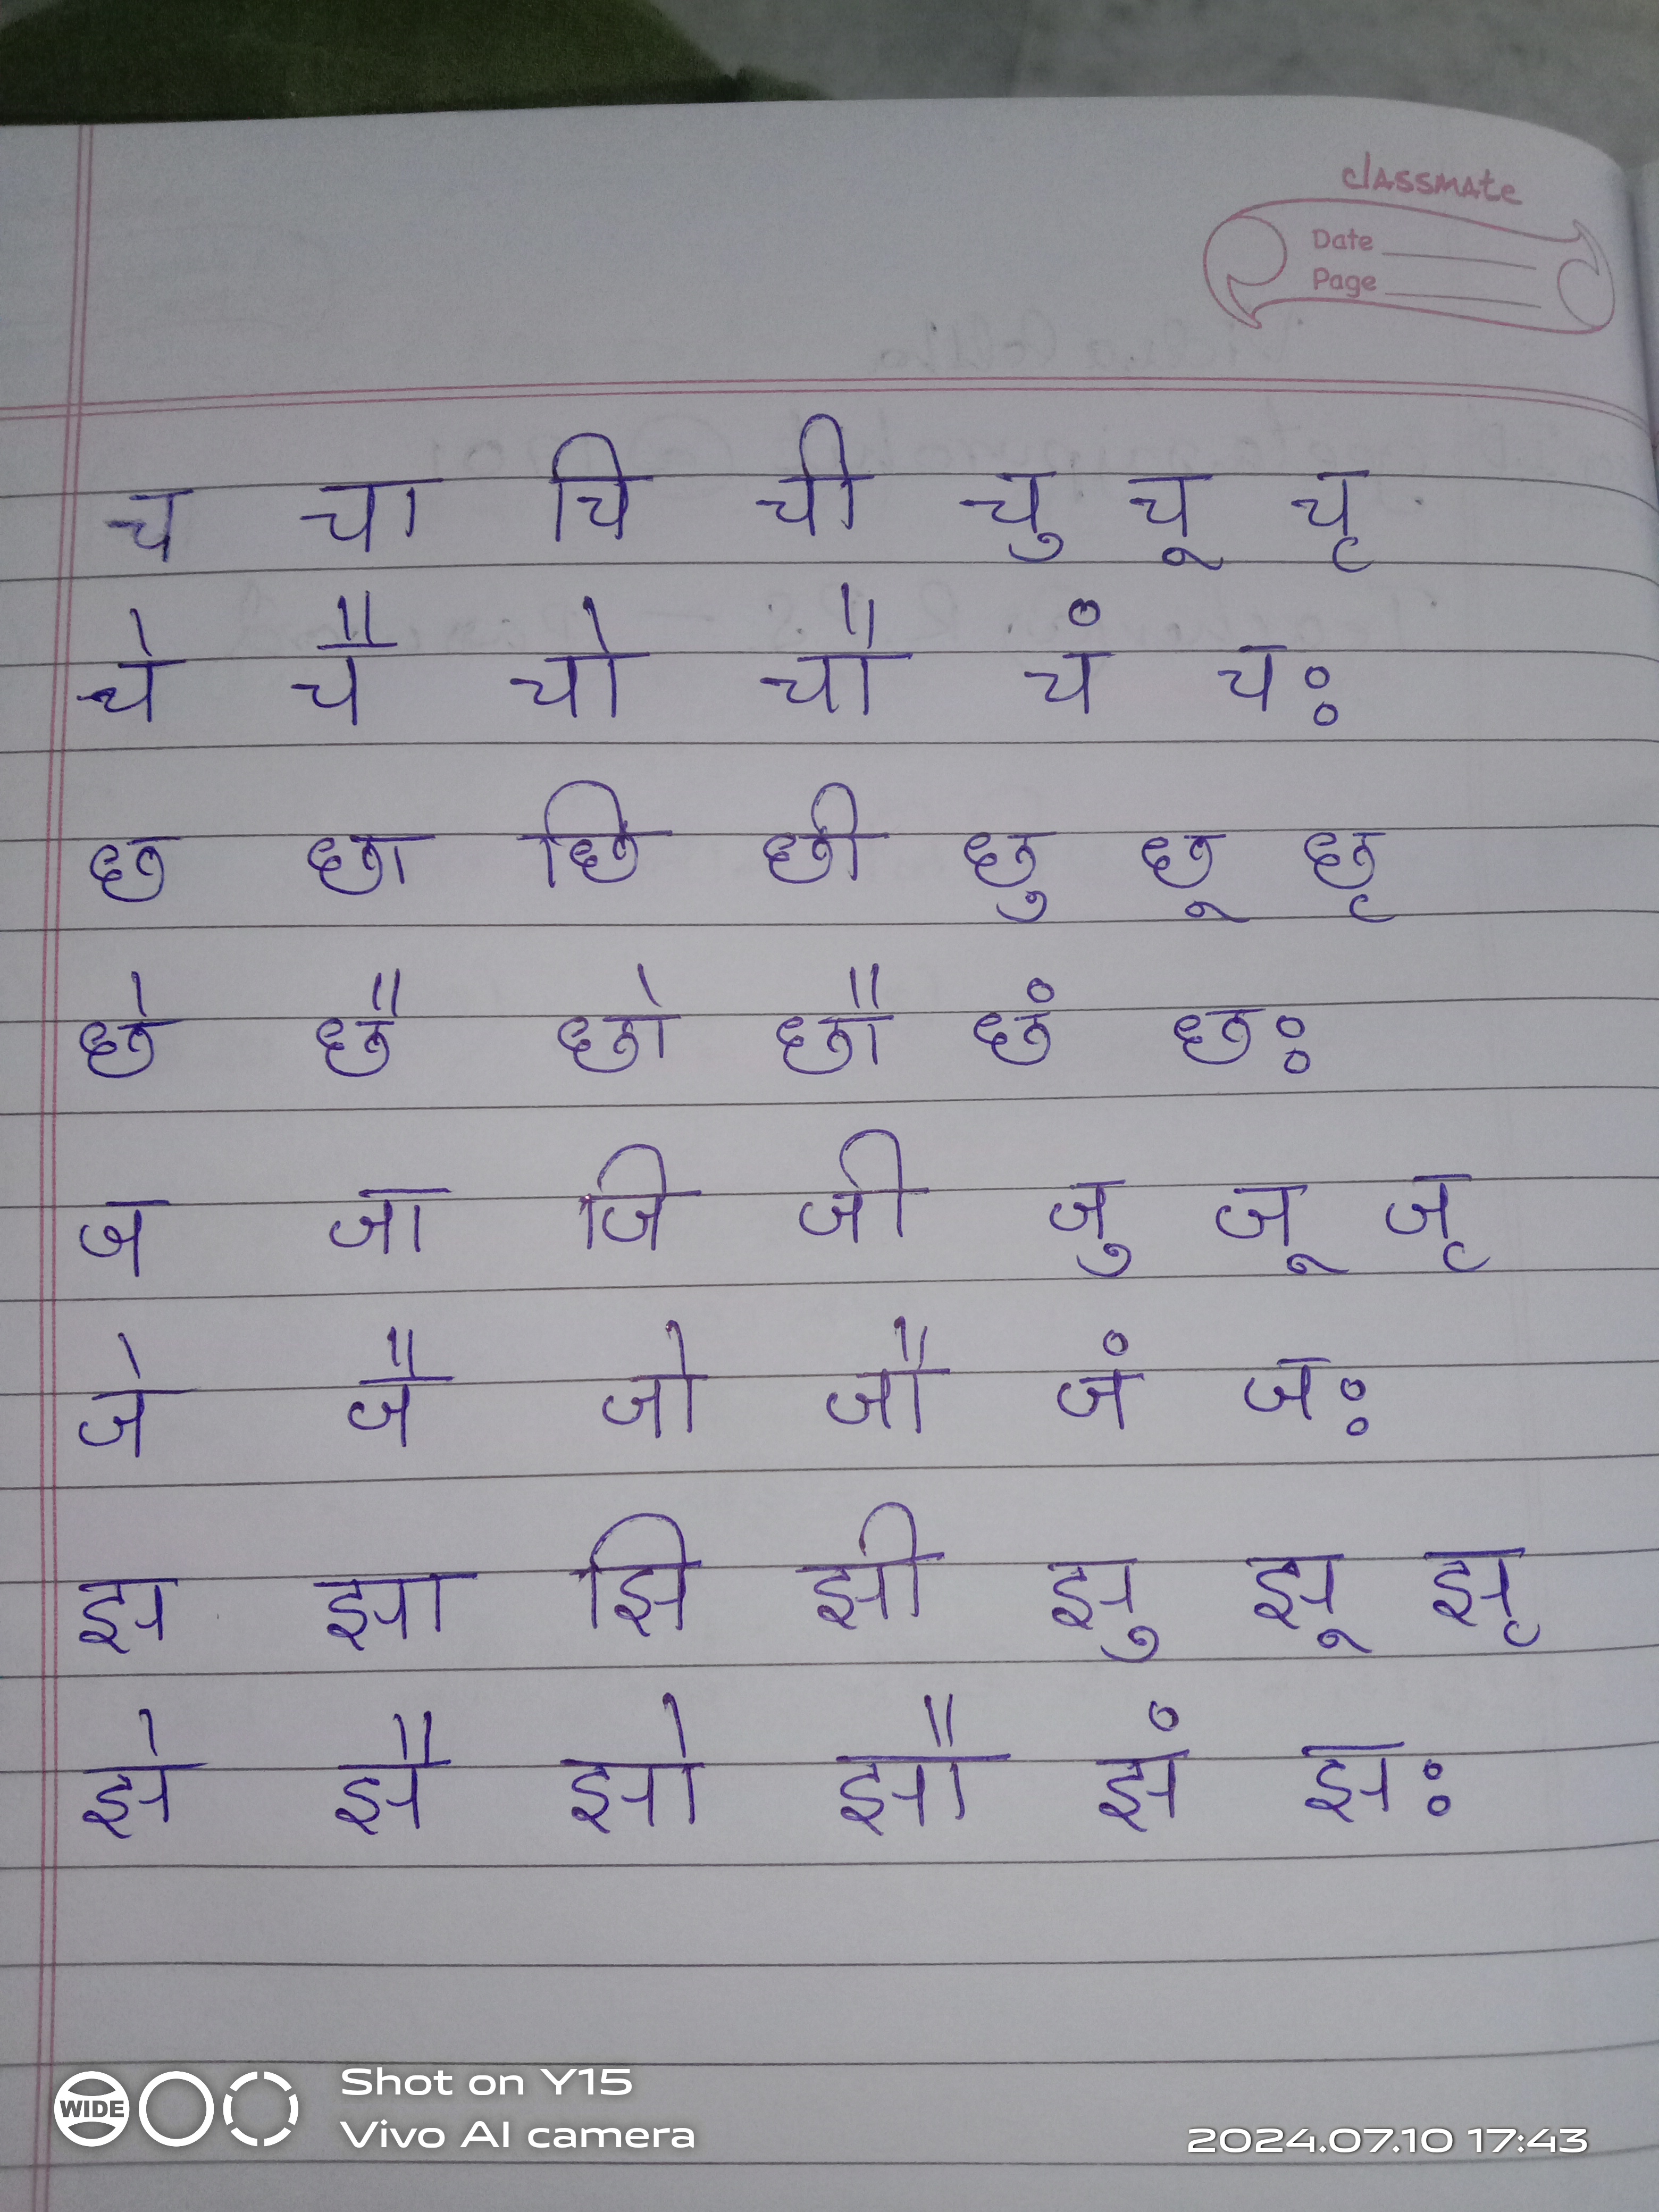 classmate
Date
Page
च चा चि ची चु चू चृ
चे चै चो चौ चं चः
छ छा छि छी छु छू छृ
छे छै छो छौ छं छः
ज जा जि जी जु जू जृ
जे जै जो जौ जं जः
झ झा झि झी झु झू झृ
झे झै झो झौ झं झः
WIDE
Shot on Y15
Vivo AI camera
2024.07.10 17:43